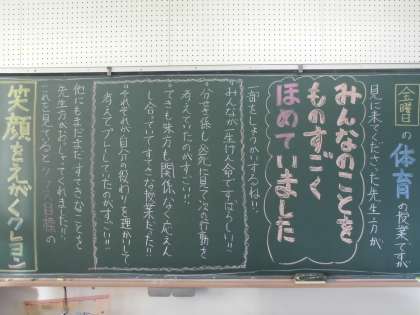 金曜日の体育の授業ですが
見に来てくださった先生方が
みんなのことを
ものすごく
ほめていました
一部をしょうかいするね!!
"みんなが一生けん命ですばらしい!!"
考えていたのがすごい!!
"てきも味方も関係なく応えん
し合っていてすてきな授業だった!!"
"それぞれが自分の役わりを理かいして
考えてプレーしていたのがすごい!!"
他にもまだまだすてきなことを
先生方がおっしゃってくれました!!
これを見てるとクラス目標の
笑顔をえがくクレヨン